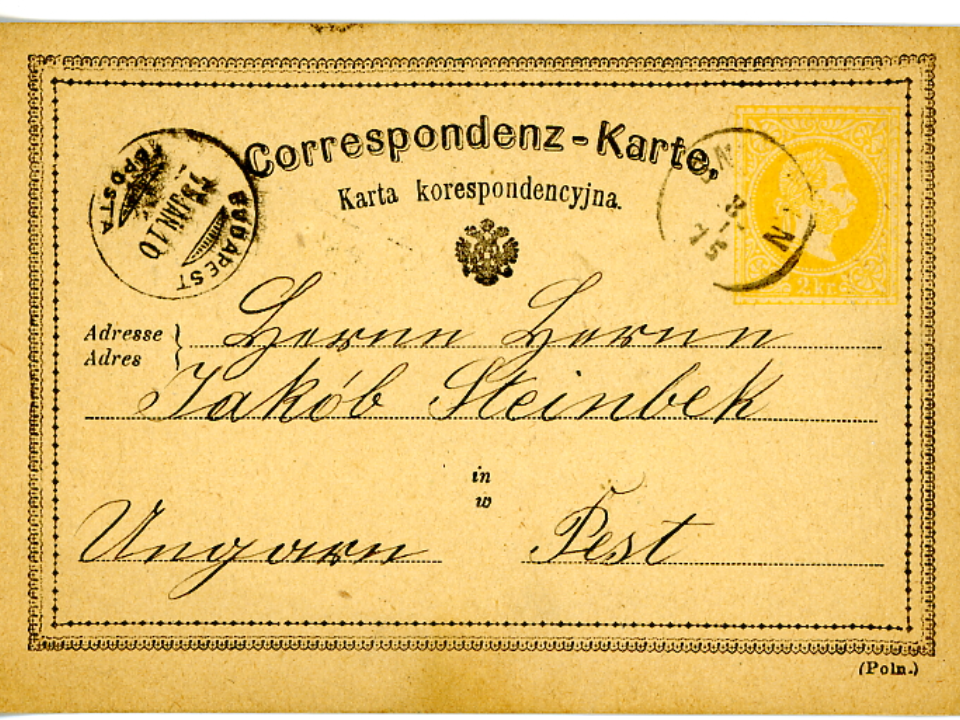 Correspondenz-Karte.
Karta korespondencyjna.
BUDAPEST
JAN 10
8
75
2 kr.
Adresse
Adres
Herrn Herrn
Jakób Steinbek
in
w
Ungarn Pest
(Poln.)